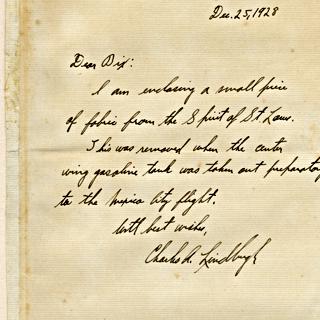 Dec. 25, 1928
Dear Dix:
I am enclosing a small piece
of fabric from the Spirit of St Louis.
This was removed when the center
wing gasoline tank was taken out preparatory
to the Mexico City flight.
With best wishes,
Charles A. Lindbergh